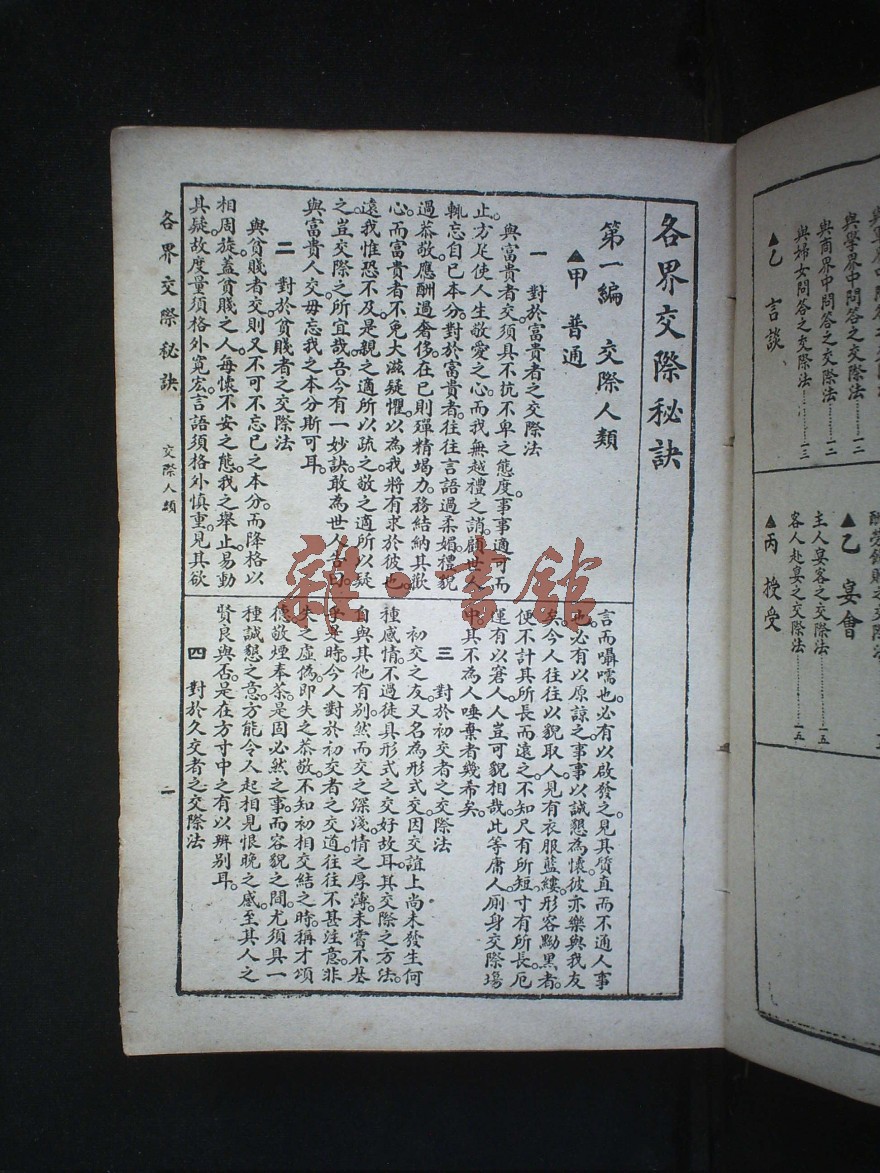 各界交際秘訣
第一編　交際人類
▲甲　普通
一　對於富貴者之交際法
與富貴者交。須具不抗不卑之態度。事事適可而
止。方足使人生敬愛之心。而我無越禮之誚。顧世人
輒忘自己本分。對於富貴者。往往言語過柔媚。禮貌
過恭敬。應酬過奢侈。在已則殫精竭力。務結納其歡
心。而富貴者不免大滋疑懼。以為我將有求於彼也。
遠我惟恐不及。是親之適所以疏之。敬之適所以疑
之。豈交際之所宜哉。吾今有一妙訣。敢為世人告曰。
與富貴人交。毋忘我之本分斯可耳。
二　對於貧賤者之交際法
與貧賤者交。則又不可不忘已之本分。而降格以
相周旋。蓋貧賤之人。每懷不安之態。我之舉止。易動
其疑。故度量須格外寬宏。言語須格外慎重。見其欲
言而囁嚅也。必有以啟發之。見其質直而不通人事
也。必有以原諒之。事事以誠懇為懷。彼亦樂與我友
矣。今人往往以貌取人。見有衣服藍縷。形容黝黑者。
便不計其所長而遠之。不知尺有所短。寸有所長。厄
運有以窘人。人豈可貌相哉。此等庸人。厠身交際場
中。其不為人唾棄者幾希矣。
三　對於初交者之交際法
初交之友。又名為形式交。因交誼上尚未發生何
種感情。不過徒具形式之交好故耳。其交際之方法。
自與其他有別。然而交之深淺。情之厚薄。未嘗不基
於是時。今人對於初交者之交道。往往不甚注意。非
失之虛偽。即失之恭敬。不知初相交結之時。稱才頌
德。敬煙奉茶。是固必然之事。而容貌之間。尤須具一
種誠懇之意。方能令人起相見恨晚之感。至其人之
賢良與否。是在方寸中之有以辨別耳。
四　對於久交者之交際法
各界交際秘訣　交際人類　一
與學界中問答之交際法…………一二
與商界中問答之交際法…………一二
與婦女問答之交際法…………一三
▲乙　言談
▲乙　宴會
主人宴客之交際法…………一五
客人赴宴之交際法…………一五
▲丙　授受
雜·書館